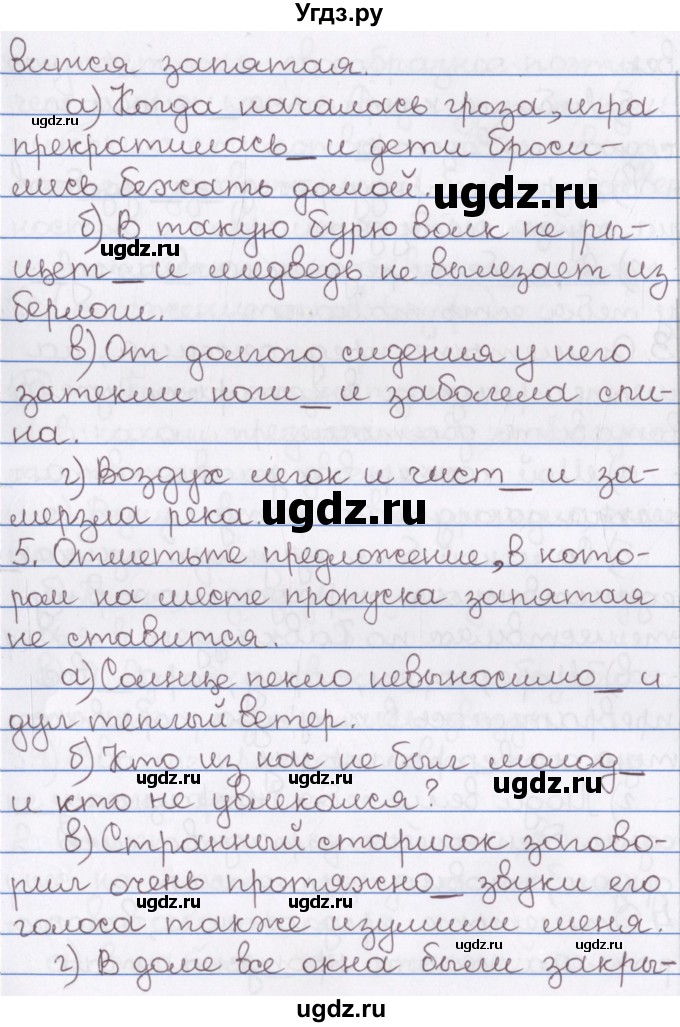 Угдз.ру
вится запятая.
а) Когда началась гроза, игра
ugdz.ru
прекратилась_ и дети броси-
ugdz.ru
лись бежать домой.
ugdz.ru
б) В такую бурю волк не ры-
ugdz.ru
щет_ и медведь не вылезает из
берлоги.
в) От долгого сидения у него
затекли ноги_ и заболела спи-
на.
г) Воздух легок и чист_ и за-
мерзла река.
ugdz.ru
5. Отметьте предложение, в кото-
ром на месте пропуска запятая
не ставится.
а) Солнце пекло невыносимо_ и
дул теплый ветер.
б) Кто из нас не был молод_
ugdz.ru ugdz.ru ugdz.ru
и кто не увлекался?
в) Странный старичок загово-
рил очень протяжно_ звуки его
ugdz.ru ugdz.ru
голоса также изумили меня.
ugdz.ru ugdz.ru
г) В доме все окна были закры-
ugdz.ru